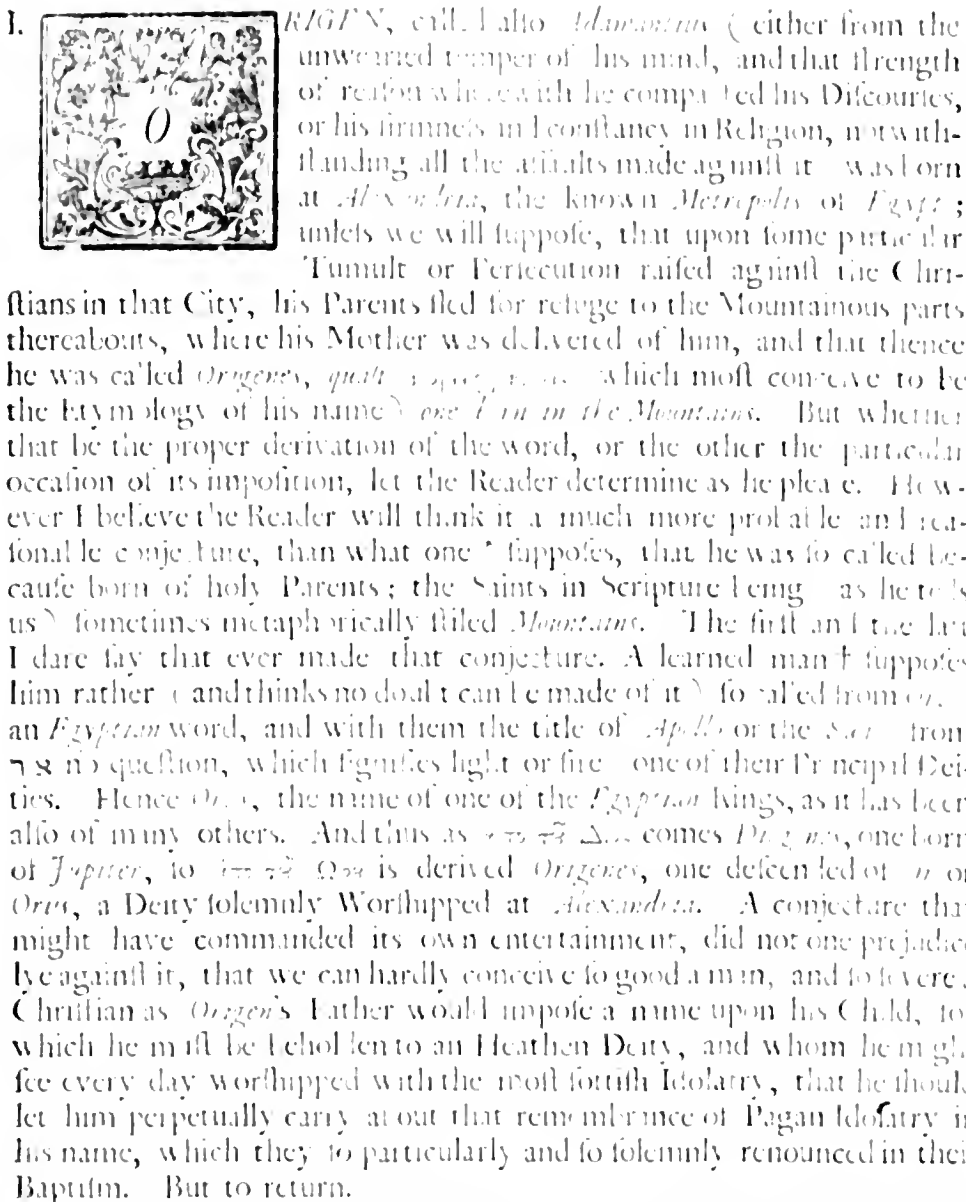 I. ORIGEN, call'd also Adamantius (either from the
unwearied temper of his mind, and that ſtrength
of reaſon wherewith he compacted his Diſcourſes,
or his firmneſs and conſtancy in Religion, notwith-
ſtanding all the aſſaults made againſt it) was born
at Alexandria, the known Metropolis of Egypt;
unleſs we will ſuppoſe, that upon ſome particular
Tumult or Perſecution raiſed againſt the Chri-
ſtians in that City, his Parents fled for refuge to the Mountainous parts
thereabouts, where his Mother was delivered of him, and that thence
he was called Origenes, quaſi which moſt conceive to be
the Etymology of his name) one born in the Mountains. But whether
that be the proper derivation of the word, or the other the particular
occaſion of its impoſition, let the Reader determine as he pleaſe. How-
ever I believe the Reader will think it a much more probable and rea-
ſonable conjecture, than what one * ſuppoſes, that he was ſo called be-
cauſe born of holy Parents; the Saints in Scripture being as he tells
us) ſometimes metaphorically ſtiled Mountains. The firſt and the laſt
I dare ſay that ever made that conjecture. A learned man † ſuppoſes
him rather (and thinks no doubt can be made of it) ſo called from
an Egyptian word, and with them the title of Apollo or the Sun from
אר no queſtion, which ſignifies light or fire one of their Principal Dei-
ties. Hence the name of one of the Egyptian Kings, as it has been
alſo of many others. And thus as comes Diogenes, one born
of Jupiter, ſo is derived Origenes, one deſcended of or
Orus, a Deity ſolemnly Worſhipped at Alexandria. A conjecture that
might have commanded its own entertainment, did not one prejudice
lye againſt it, that we can hardly conceive ſo good a man, and ſo ſevere a
Chriſtian as Origen's Father would impoſe a name upon his Child, for
which he muſt be beholden to an Heathen Deity, and whom he might
ſee every day worſhipped with the moſt ſottiſh Idolatry, that he ſhould
let him perpetually carry about that remembrance of Pagan Idolatry in
his name, which they ſo particularly and ſo ſolemnly renounced in their
Baptiſm. But to return.